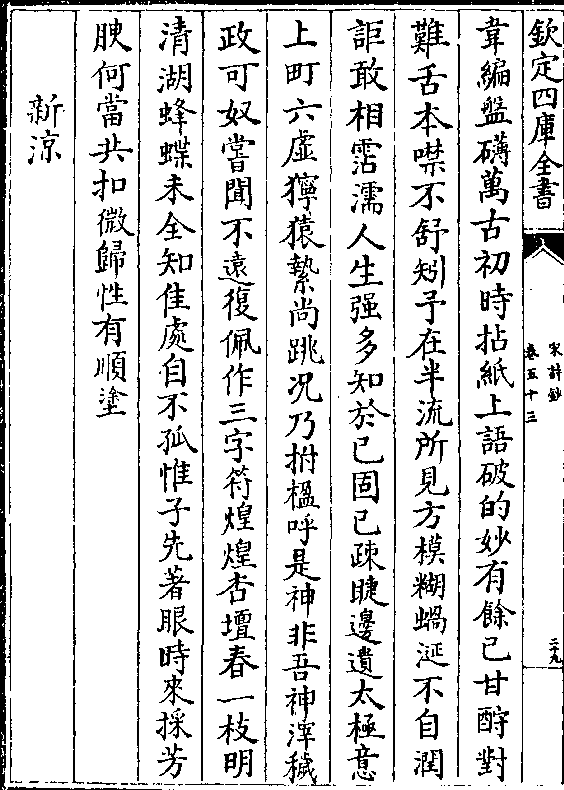 欽定四庫全書
宋詩鈔
卷五十三
二十九
韋編盤礴萬古初時拈紙上語破的妙有餘已甘酧對
難舌本噤不舒矧予在半流所見方模糊蝸涎不自潤
詎敢相霑濡人生强多知於已固已疎睫邊遺太極意
上町六虚獰猿縶尚跳况乃拊楹呼是神非吾神滓穢
政可奴嘗聞不遠復佩作三字符煌煌杏壇春一枝明
清湖蜂蝶未全知佳處自不孤惟子先著眼時來採芳
腴何當共扣微歸性有順塗
新涼